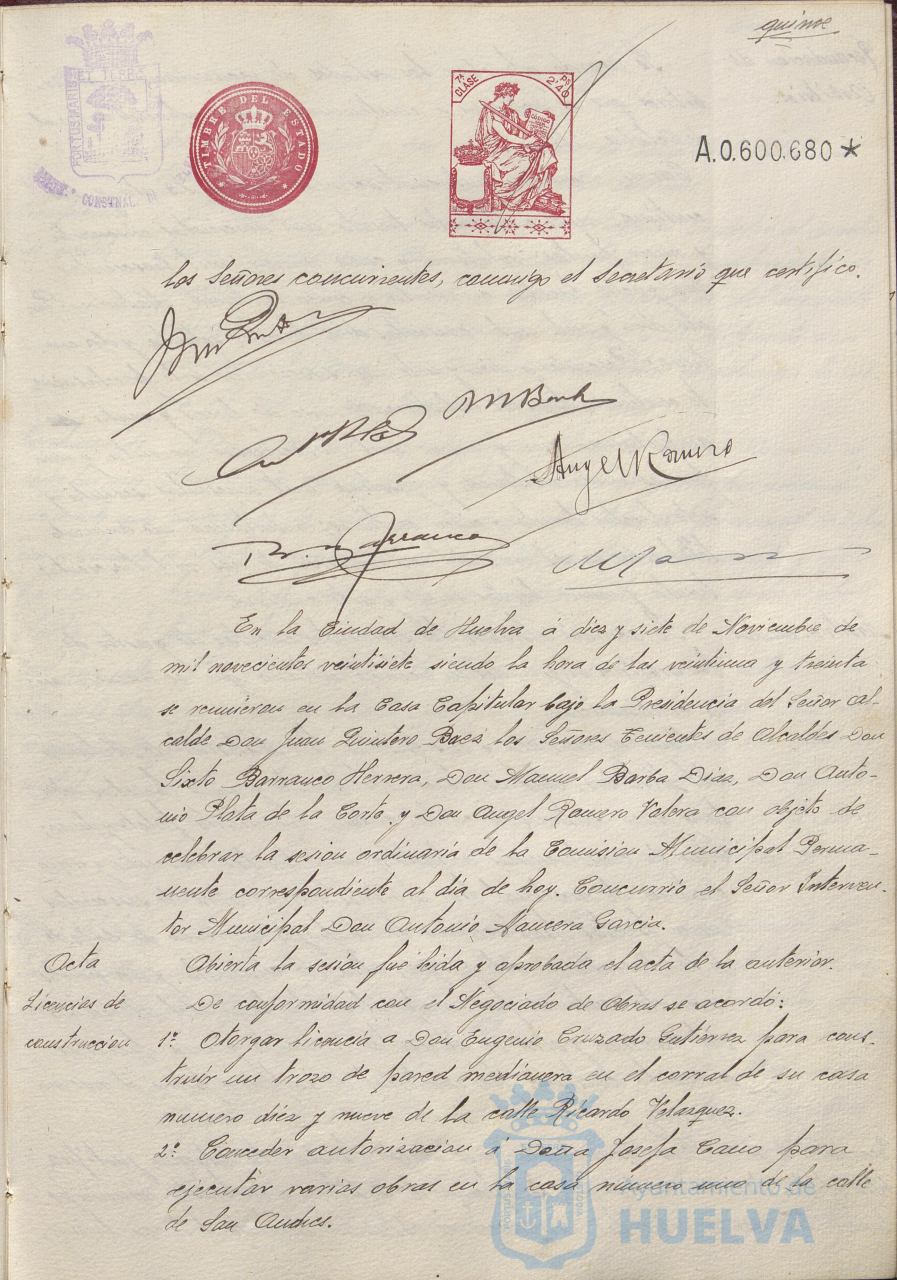 quince
PORTUS MARIS ET TERRÆ
CONSTNAL
TIMBRE DEL ESTADO
7ª CLASE
2 PS 40
CODIGO
A.0.600.680 *
los Señores concurrentes, conmigo el Secretario que certifico.
M Barba
Angel Romero
Barranco
En la Ciudad de Huelva á diez y siete de Noviembre de
mil novecientos veintisiete siendo la hora de las veintiuna y treinta
se reunieron en la Casa Capitular bajo la Presidencia del Señor Al-
calde Don Juan Quintero Baez los Señores Tenientes de Alcaldes Don
Sixto Barranco Herrera, Don Manuel Barba Diaz, Don Anto-
nio Plata de la Corte, y Don Angel Romero Valera con objeto de
celebrar la sesion ordinaria de la Comision Municipal Perma-
nente correspondiente al dia de hoy. Concurrió el Señor Interven-
tor Municipal Don Antonio Mancera Garcia.
Acta
Abierta la sesion fué leida y aprobada el acta de la anterior.
Licencias de
construccion
De conformidad con el Negociado de Obras se acordó:
1º Otorgar licencia a Don Eugenio Cruzado Gutiérrez para cons-
truir un trozo de pared medianera en el corral de su casa
numero diez y nueve de la calle Ricardo Velazquez.
2º Conceder autorizacion á Doña Josefa Cano para
ejecutar varias obras en la casa número uno de la calle
de San Andres.
Ayuntamiento de
HUELVA